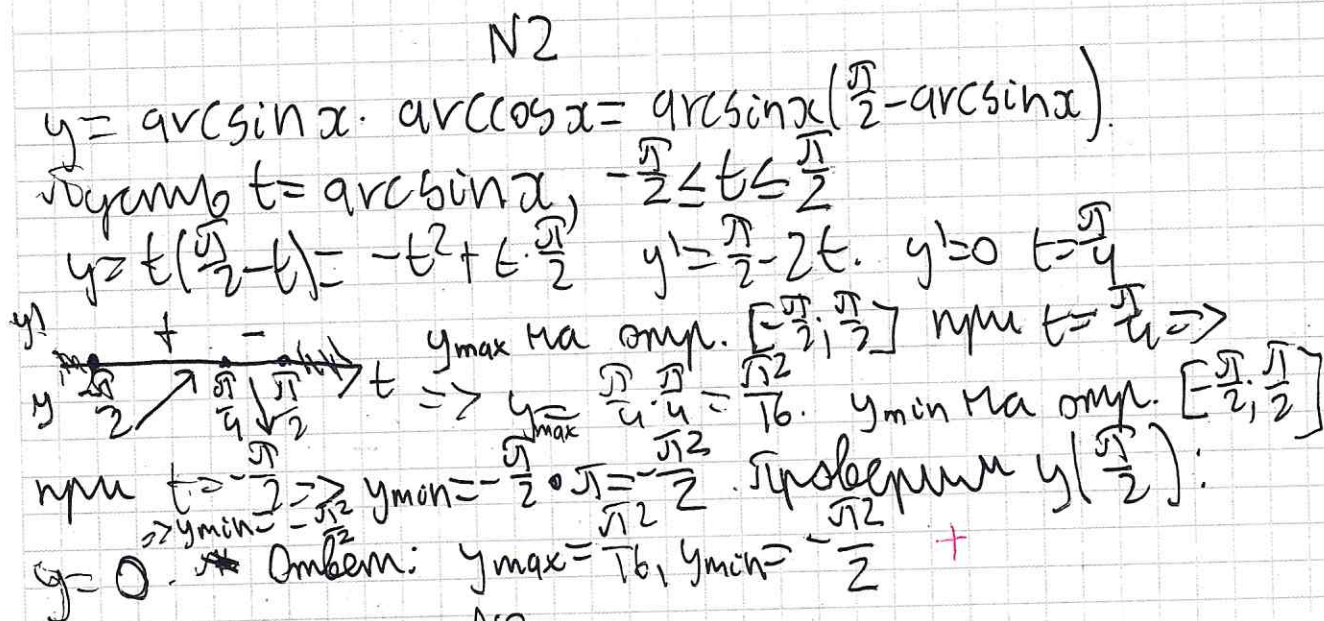 N2
y = arcsin x · arccos x = arcsin x (π/2 - arcsin x).
Пусть t = arcsin x, -π/2 ≤ t ≤ π/2
y = t(π/2 - t) = -t² + t·π/2 y' = π/2 - 2t. y' = 0 t = π/4
y' + - t y -π/2 π/4 π/2
y max на отр. [-π/2; π/2] при t = π/4 =>
=> y max = π/4 · π/4 = π²/16. y min на отр. [-π/2; π/2]
при t = -π/2 => y min = -π/2 · π = -π²/2. Проверим y(π/2):
=> y min = -π²/2
y = 0. Ответ: y max = π²/16, y min = -π²/2 +